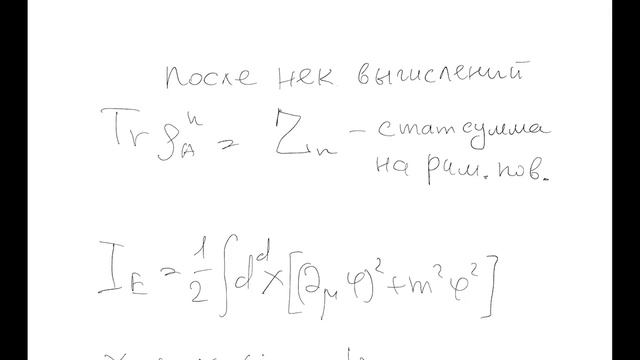 после нек вычислений
Tr ρ_A^n = Z_n – статсумма
на рим. пов.
I_E = 1/2 ∫ d^d x [(∂_μ φ)^2 + m^2 φ^2]